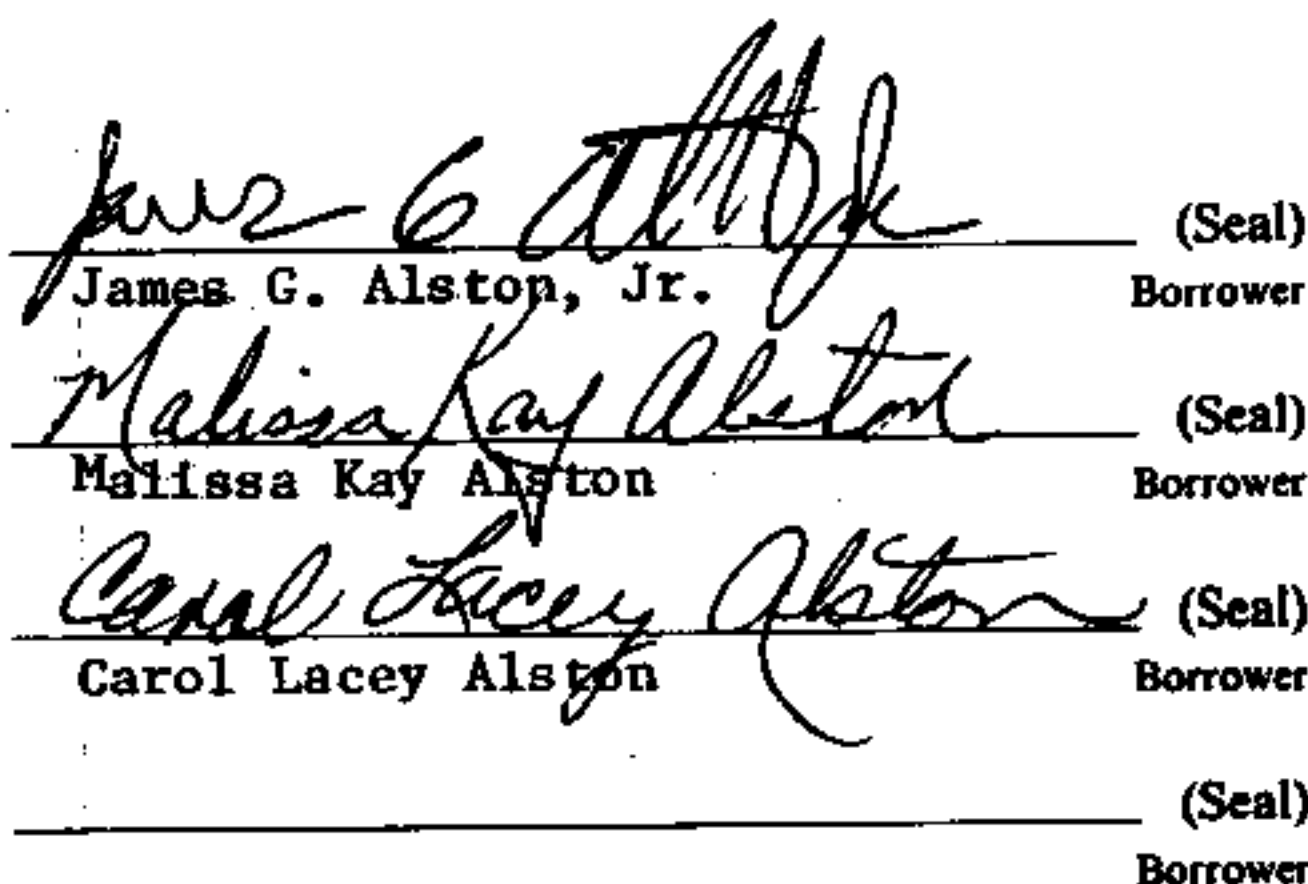 James G Alston Jr (Seal)
James G. Alston, Jr. Borrower
Malissa Kay Alston (Seal)
Malissa Kay Alston Borrower
Carol Lacey Alston (Seal)
Carol Lacey Alston Borrower
(Seal)
Borrower